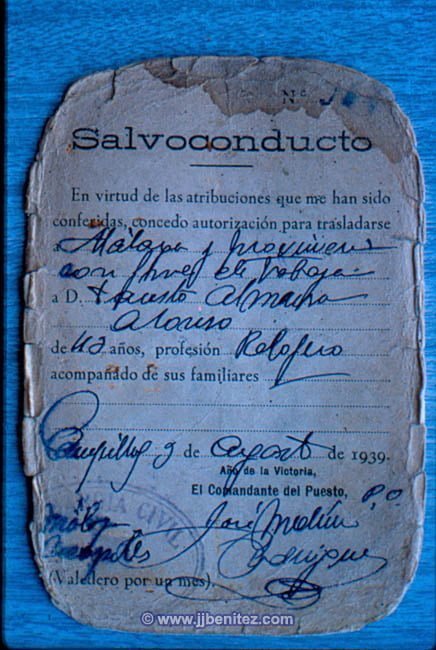 Nº
Salvoconducto
En virtud de las atribuciones que me han sido
conferidas, concedo autorización para trasladarse
a Málaga y
con fines de trabajo
a D. Fausto
Alonso
de 42 años, profesión Relojero
acompañado de sus familiares
Campillos 9 de agosto de 1939.
Año de la Victoria,
El Comandante del Puesto,
P.O.
José Medina
CIVIL
(Valedero por un mes).
© www.jjbenitez.com